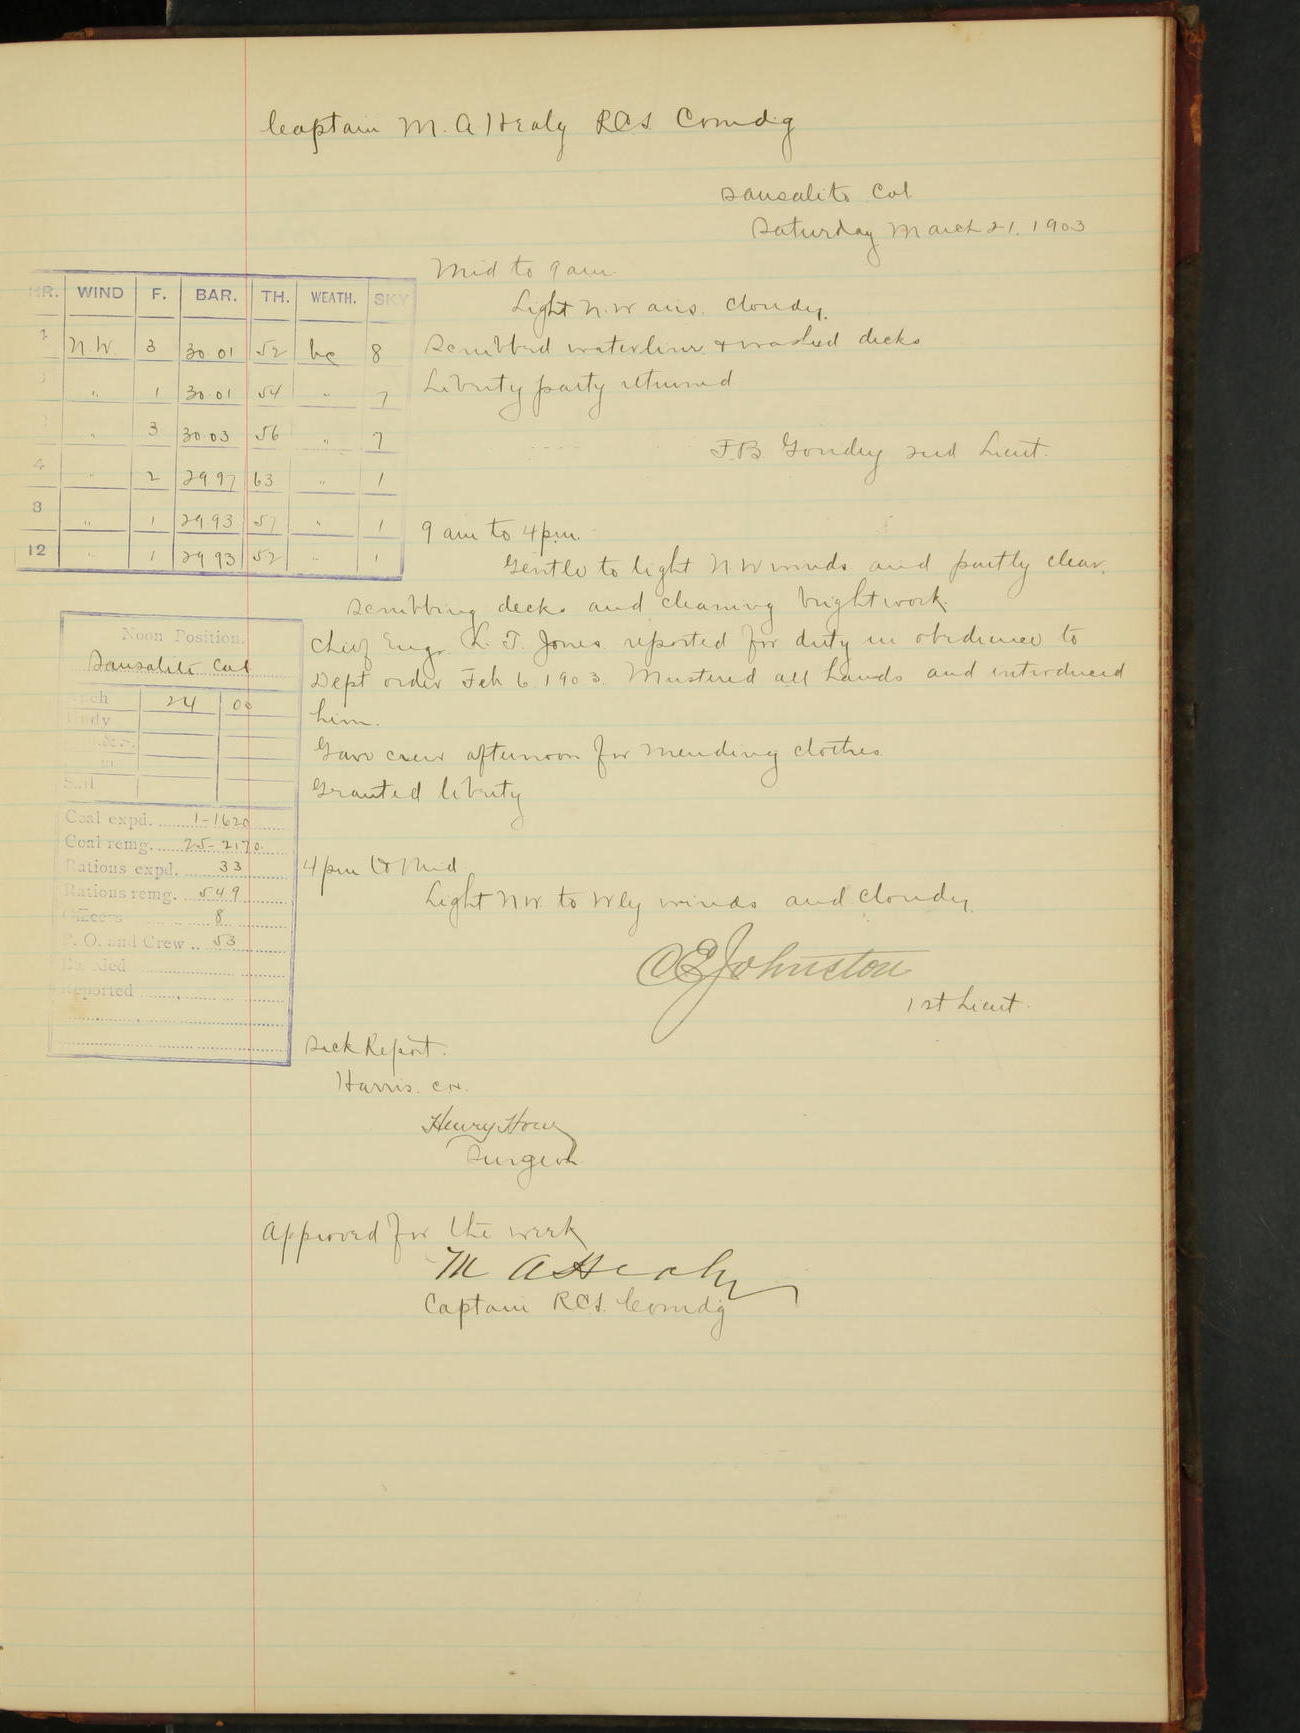 Captain M. A Healy RCS Comdg
Sausalito Cal
Saturday March 21. 1903
Mid to 9 am.
Light N.W airs. Cloudy.
Scrubbed waterline & washed decks
Liberty party returned
F.B Goudey 2nd Lieut.
HR. WIND F. BAR. TH. WEATH. SKY
N.W 3 30.01 52 bc 8
" 1 30.01 54 " 7
" 3 30.03 56 " 7
4 " 2 29.97 63 " 1
8 " 1 29.93 57 " 1
12 " 1 29.93 52 " 1
9 am to 4 pm.
Gentle to light NW winds and partly clear.
Scrubbing decks and cleaning brightwork.
Chief Engr. L. T. Jones reported for duty in obedience to
Dept order Feb 6 1903. Mustered all hands and introduced
him.
Gave crew afternoon for mending clothes
Granted liberty
Noon Position.
Sausalito Cal
24 00
Coal expd. 1-1620
Coal remg. 25-2170
Rations expd. 33
Rations remg. 549
Officers 8
P. O. and Crew 53
Reported
4 pm to Mid
Light NW. to Wly winds and cloudy.
C E Johnston
1st Lieut.
Sick Report.
Harris. cn.
Henry Horn
Surgeon
Approved for the week
M A Healy
Captain RCS. Comdg